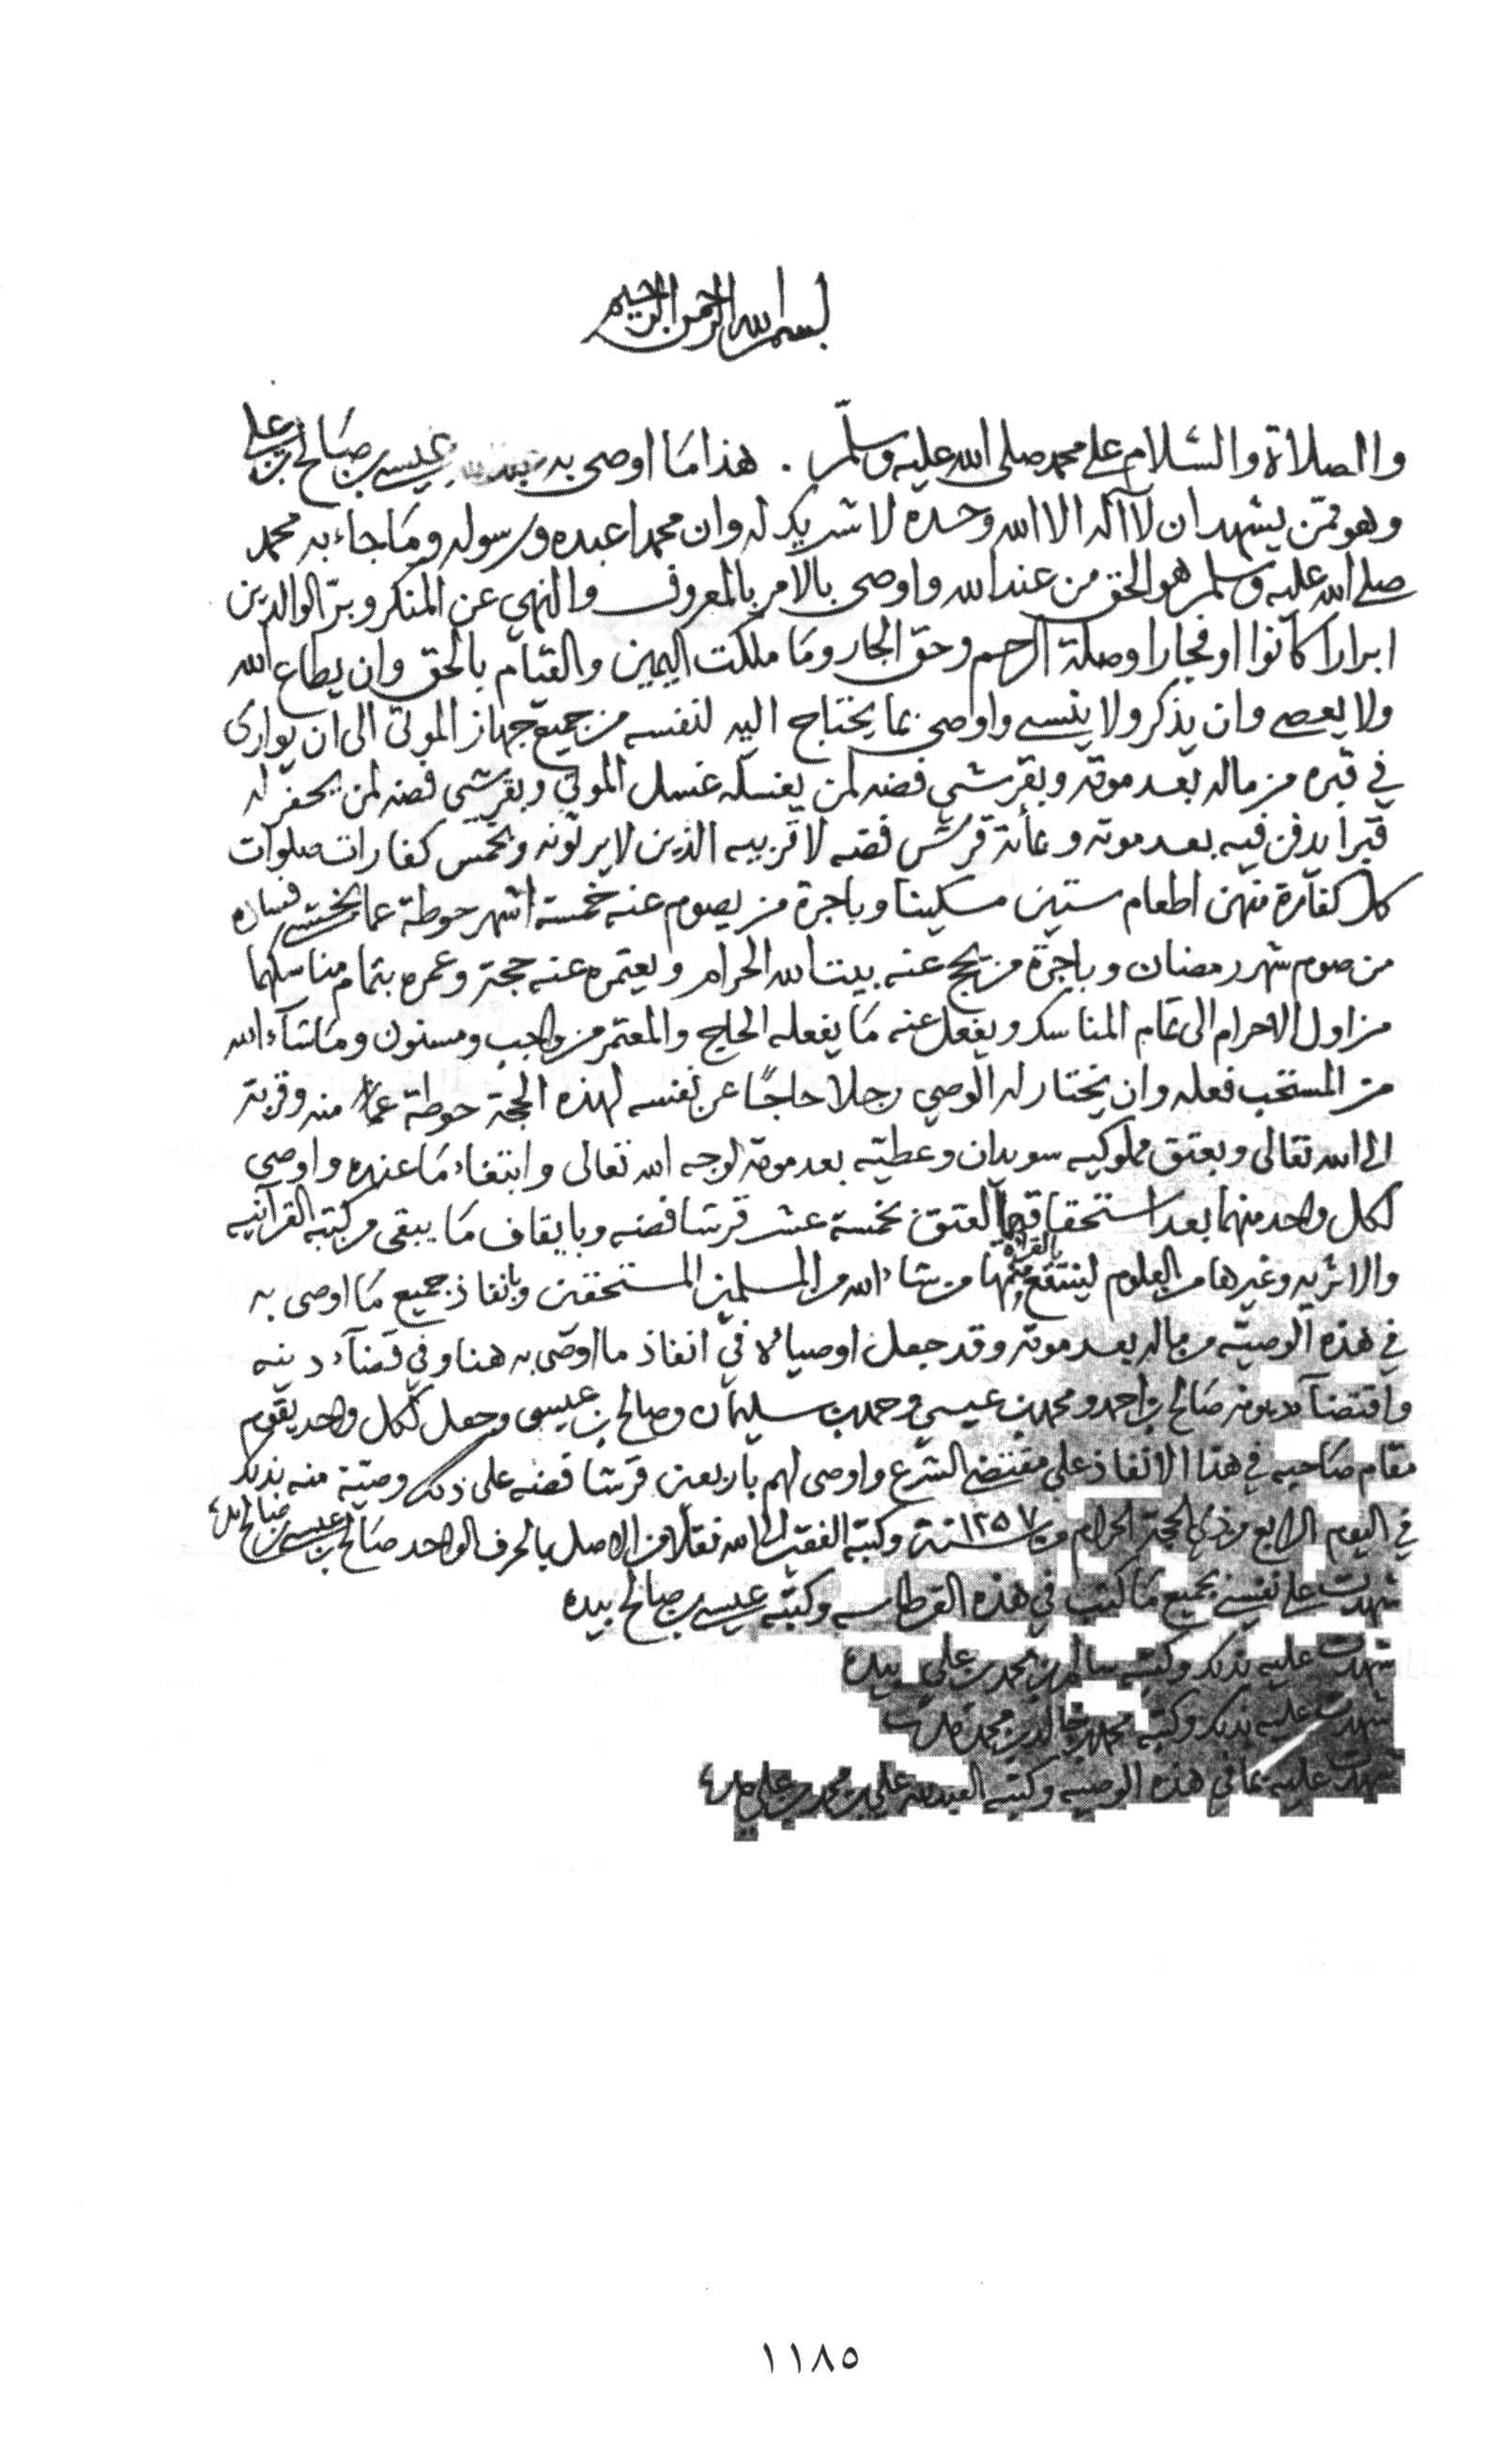 بسم الله الرحمن الرحيم
والصلاة والسلام على محمد صلى الله عليه وسلم . هذا ما اوصى به عيسى بن صالح بن علي
وهو ممن يشهد ان لا اله الا الله وحده لا شريك له وان محمدا عبده ورسوله وما جاء به محمد
صلى الله عليه وسلم هو الحق من عند الله واوصى بالامر بالمعروف والنهي عن المنكر وبر الوالدين
ابرارا كانوا او فجارا وصلة الرحم وحق الجار وما ملكت اليمين والقيام بالحق وان يطاع الله
ولا يعصى وان يذكر ولا ينسى واوصى بما يحتاج اليه لنفسه من جميع جهاز الموتى الى ان يوارى
في قبره من ماله بعد موته وبقرشي فضه لمن يغسله غسل الموتى وبقرشي فضه لمن يحفر له
قبرا يدفن فيه بعد موته وبمأئة قرش فضه لاقربيه الذين لا يرثونه وبخمس كفارات صلوات
كل كفارة منهن اطعام ستين مسكينا وباجرة من يصوم عنه خمسة اشهر حوطة عما يخشى فساده
من صوم شهر رمضان وباجرة من يحج عنه بيت الله الحرام ويعتمر عنه حجة وعمره بتمام مناسكهما
من اول الاحرام الى تمام المناسك ويفعل عنه ما يفعله الحاج والمعتمر من واجب ومسنون وما شآء الله
من المستحب فعله وان يختار له الوصي رجلا حاجًا عن نفسه لهذه الحجة حوطة منه وقربة
الى الله تعالى وبعتق مملوكيه سويدان وعطيه بعد موته لوجه الله تعالى وابتغاء ما عنده واوصى
لكل واحد منهما بعد استحقاقهما العتق بخمسة عشر قرشا فضه وبايقاف ما يبقى من كتبه القرآنيه
والاثريه وغيرها من العلوم لينتفع بالقراءة منها من شاء الله من المسلمين المستحقين وبانفاذ جميع ما اوصى به
في هذه الوصية من ماله بعد موته وقد جعل اوصياءه في انفاذ ما اوصى به هنا وفي قضآء دينه
واقتضآء ديونه صالح بن احمد ومحمد بن عيسى وحمد بن سليمان وصالح بن عيسى وجعل لكل واحد يقوم
مقام صاحبه في هذا الانفاذ على مقتضى الشرع واوصى لهم باربعين قرشا فضه على ذلك وصية منه بذلك
في اليوم الرابع من ذي الحجة الحرام من سنة ١٣٥٧ وكتبه الفقير الى الله نقلا من الاصل بالحرف الواحد صالح بن عيسى بن صالح بيده
شهدت على نفسي بجميع ما كتب في هذه القرطاسه وكتبه عيسى بن صالح بيده
شهدت عليه بذلك وكتبه سالم بن محمد بن علي بيده
شهدت عليه بذلك وكتبه محمد بن خالد بن محمد بيده
شهدت عليه بما في هذه الوصيه وكتبه العبد لله علي بن محمد بن علي بيده
١١٨٥